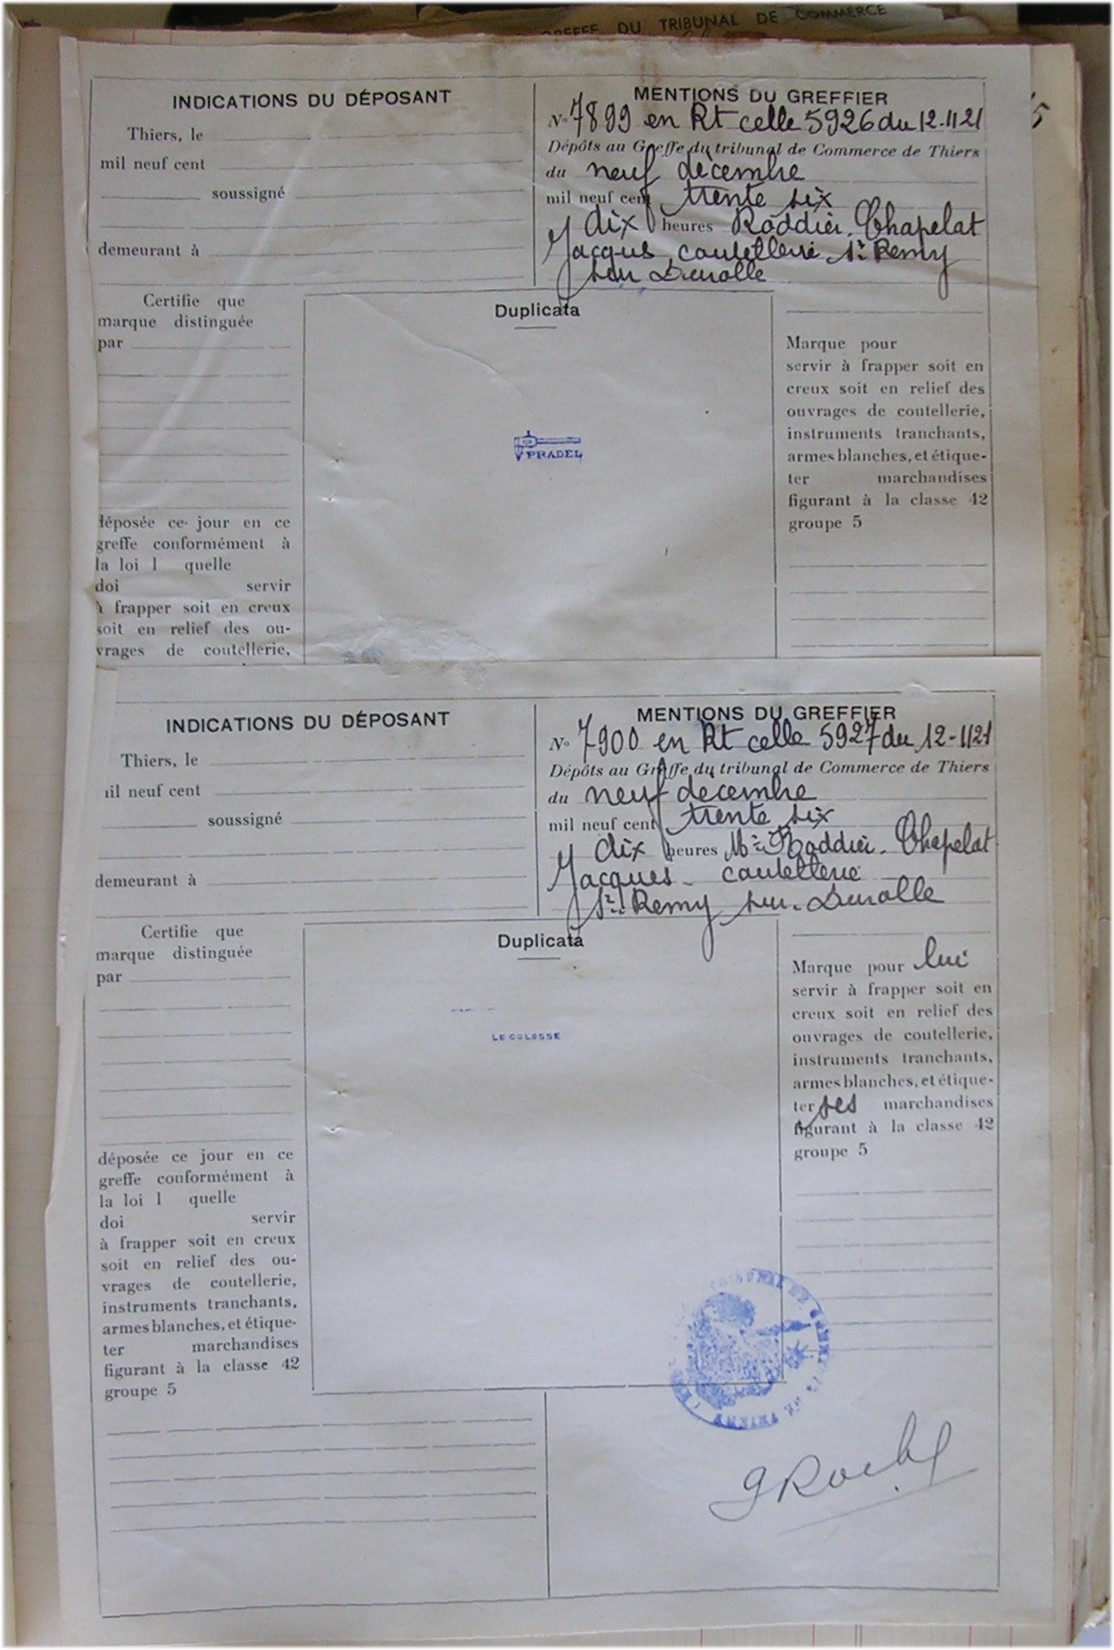 GREFFE DU TRIBUNAL DE COMMERCE
INDICATIONS DU DÉPOSANT
Thiers, le
mil neuf cent
soussigné
demeurant à
MENTIONS DU GREFFIER
No 7899 en Rt celle 5926 du 12-11 21
Dépôts au Greffe du tribunal de Commerce de Thiers
du neuf décembre
mil neuf cent trente six
dix heures Roddier-Chapelat
Jacques coutellerie St Remy
sur Durolle
Certifie que
marque distinguée
par
déposée ce jour en ce
greffe conformément à
la loi l quelle
doi servir
à frapper soit en creux
soit en relief des ou-
vrages de coutellerie,
Duplicata
PRADEL
Marque pour
servir à frapper soit en
creux soit en relief des
ouvrages de coutellerie,
instruments tranchants,
armes blanches, et étique-
ter marchandises
figurant à la classe 42
groupe 5
INDICATIONS DU DÉPOSANT
Thiers, le
il neuf cent
soussigné
demeurant à
MENTIONS DU GREFFIER
No 7900 en Rt celle 5927 du 12-11 21
Dépôts au Greffe du tribunal de Commerce de Thiers
du neuf décembre
mil neuf cent trente six
dix heures Mr Roddier-Chapelat
Jacques - coutellerie
St Remy sur-Durolle
Certifie que
marque distinguée
par
déposée ce jour en ce
greffe conformément à
la loi l quelle
doi servir
à frapper soit en creux
soit en relief des ou-
vrages de coutellerie,
instruments tranchants,
armes blanches, et étique-
ter marchandises
figurant à la classe 42
groupe 5
Duplicata
LE COLOSSE
Marque pour lui
servir à frapper soit en
creux soit en relief des
ouvrages de coutellerie,
instruments tranchants,
armes blanches, et étique-
ter ses marchandises
figurant à la classe 42
groupe 5
TRIBUNAL DE COMMERCE DE THIERS